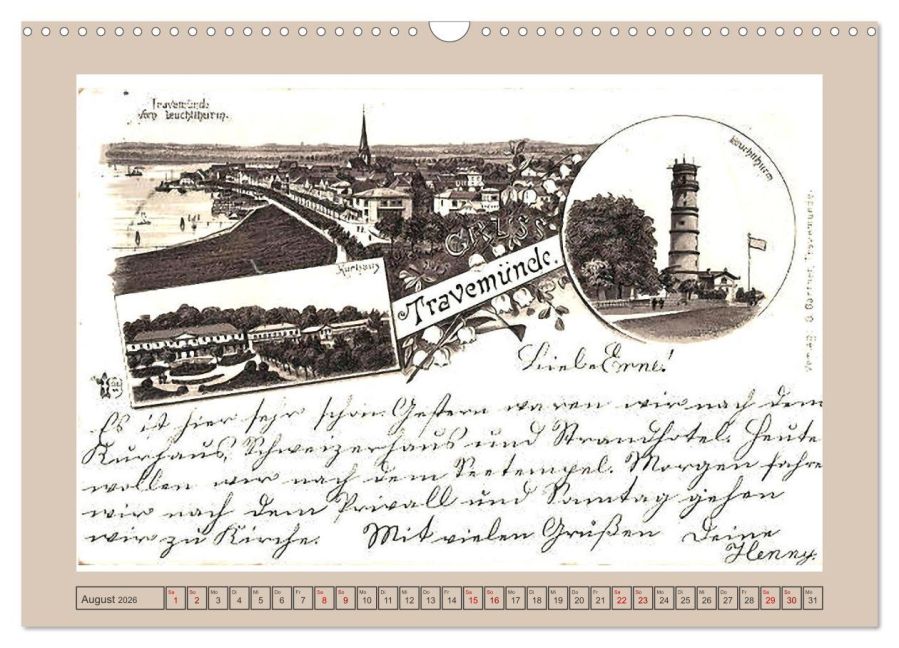 Travemünde
vom Leuchtthurm.
Leuchtthurm
GRUSS
Kurhaus
Travemünde.
Liebe Erne!
Es ist hier sehr schön. Gestern waren wir nach dem
Kurhaus, Schweizerhaus und Strandhotel. Heute
wollen wir nach dem Seetempel. Morgen fahre
wir nach dem Privall und Sonntag gehen
wir zu Kirche. Mit vielen Grüßen Deine
Henny.
August 2026
Sa So Mo Di Mi Do Fr Sa So Mo Di Mi Do Fr Sa So Mo Di Mi Do Fr Sa So Mo Di Mi Do Fr Sa So Mo
1 2 3 4 5 6 7 8 9 10 11 12 13 14 15 16 17 18 19 20 21 22 23 24 25 26 27 28 29 30 31